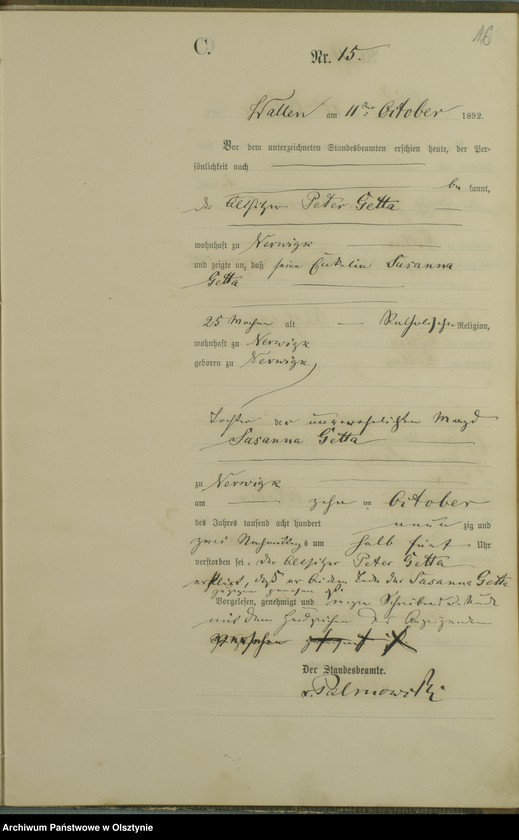 16
C.
Nr. 15.
Wallen am 11ten October 1892.
Vor dem unterzeichneten Standesbeamten erschien heute, der Per-
sönlichkeit nach
be kannt,
der Altsitzer Peter Getta
wohnhaft zu Nerwigk
und zeigte an, daß seine Enkelin Susanna
Getta
25 Wochen alt Katholischer Religion,
wohnhaft zu Nerwigk
geboren zu Nerwigk,
Tochter der unverehelichten Magd
Susanna Getta
zu Nerwigk
am zehn ten October
des Jahres tausend acht hundert neun zig und
zwei Nachmittags um halb fünf Uhr
verstorben sei. Der Altsitzer Peter Getta
erklärt, daß er bei dem Tode der Susanna Getta
zugegen gewesen ist.
Vorgelesen, genehmigt und wegen Schreibens
mit dem Handzeichen des Anzeigenden
versehen
Der Standesbeamte.
v. Palmowski
Archiwum Państwowe w Olsztynie